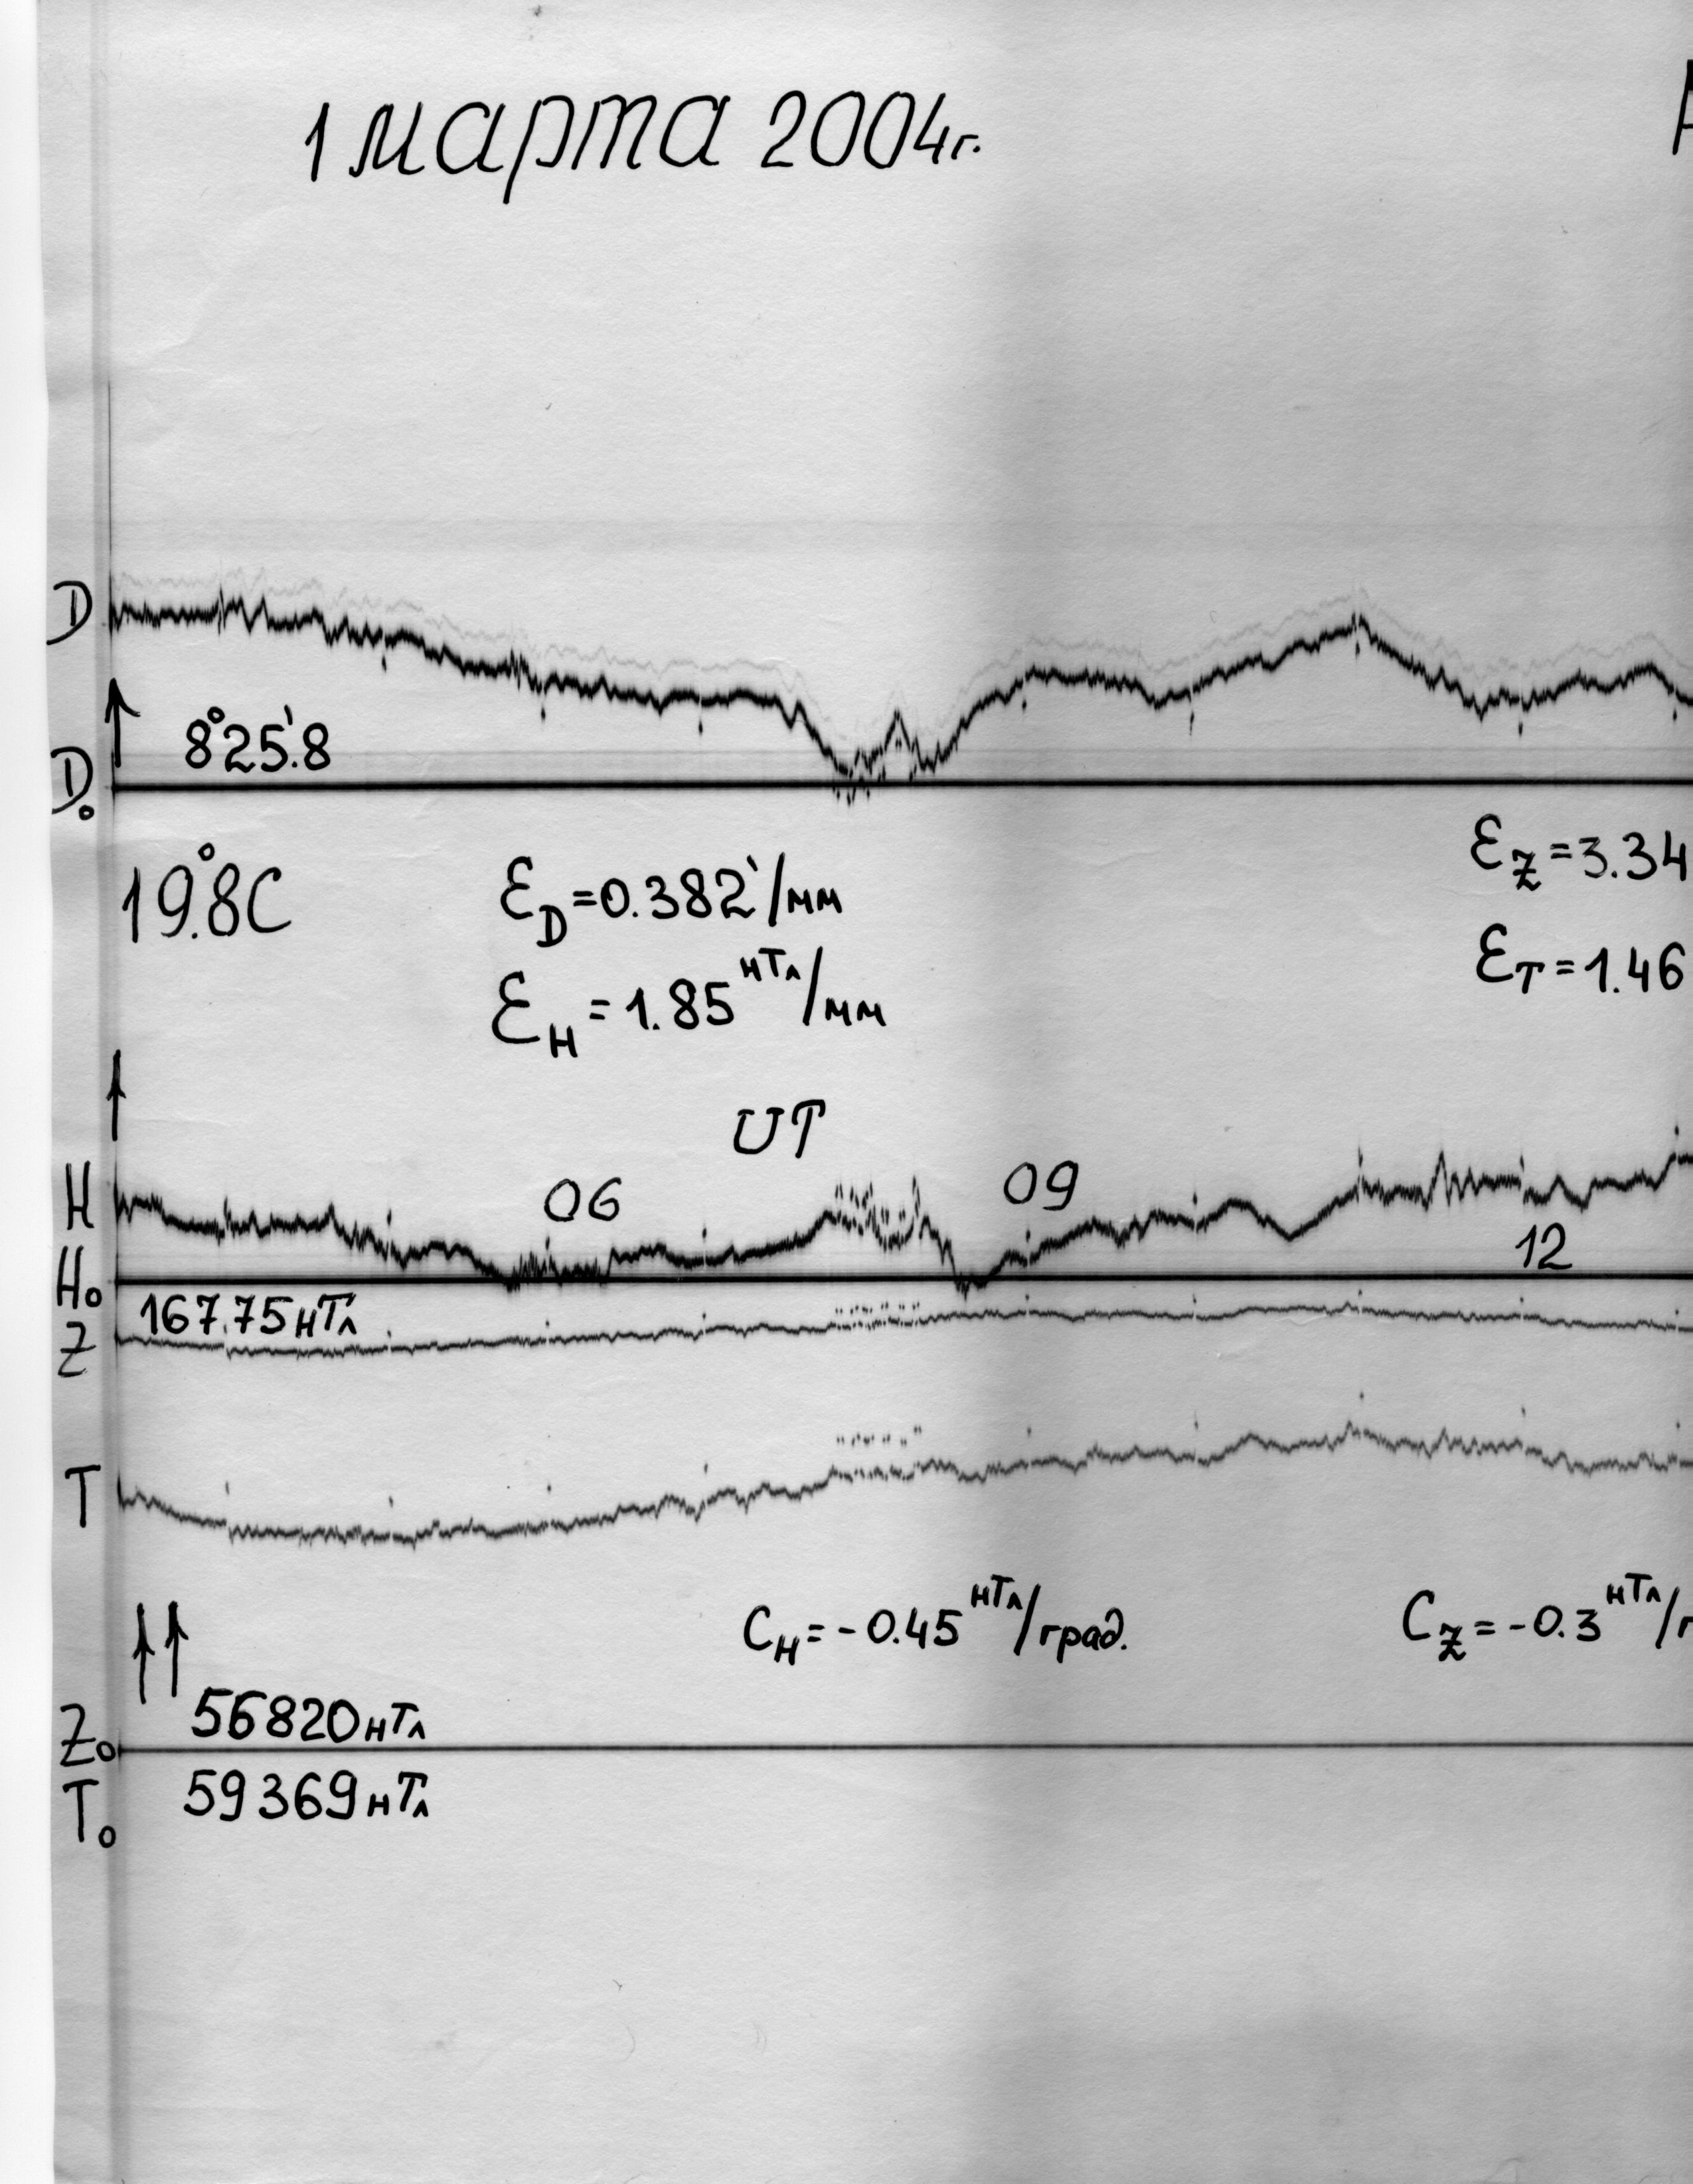 1 марта 2004г.
D
8°25.'8
D₀
19.°8С
Ɛ_D=0.382'/мм
Ɛ_Z=3.34
Ɛ_H=1.85 нТл/мм
Ɛ_T=1.46
UT
H
06
09
12
H₀
167.75нТл
Z
T
C_H=-0.45 нТл/град.
C_Z=-0.3 нТл/г
56820нТл
Z₀
59369нТл
T₀